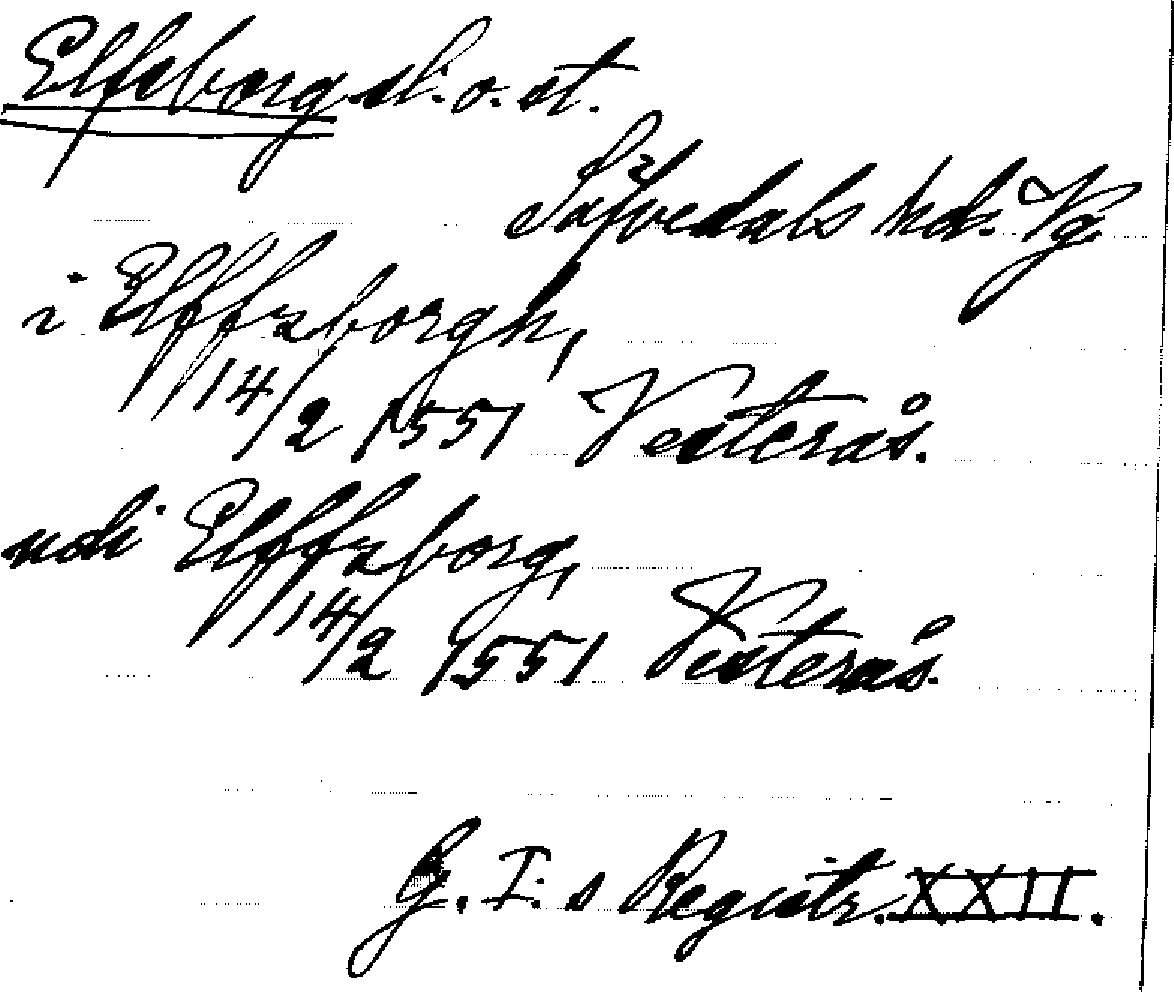 Elfsborg sl. o. st.
Säfvedals hd. Vg.
i Elffzborgh,
14/2 1551 Vesterås.
udi Elffzborg,
14/2 1551 Vesterås.
G. I: s Registr. XXII.